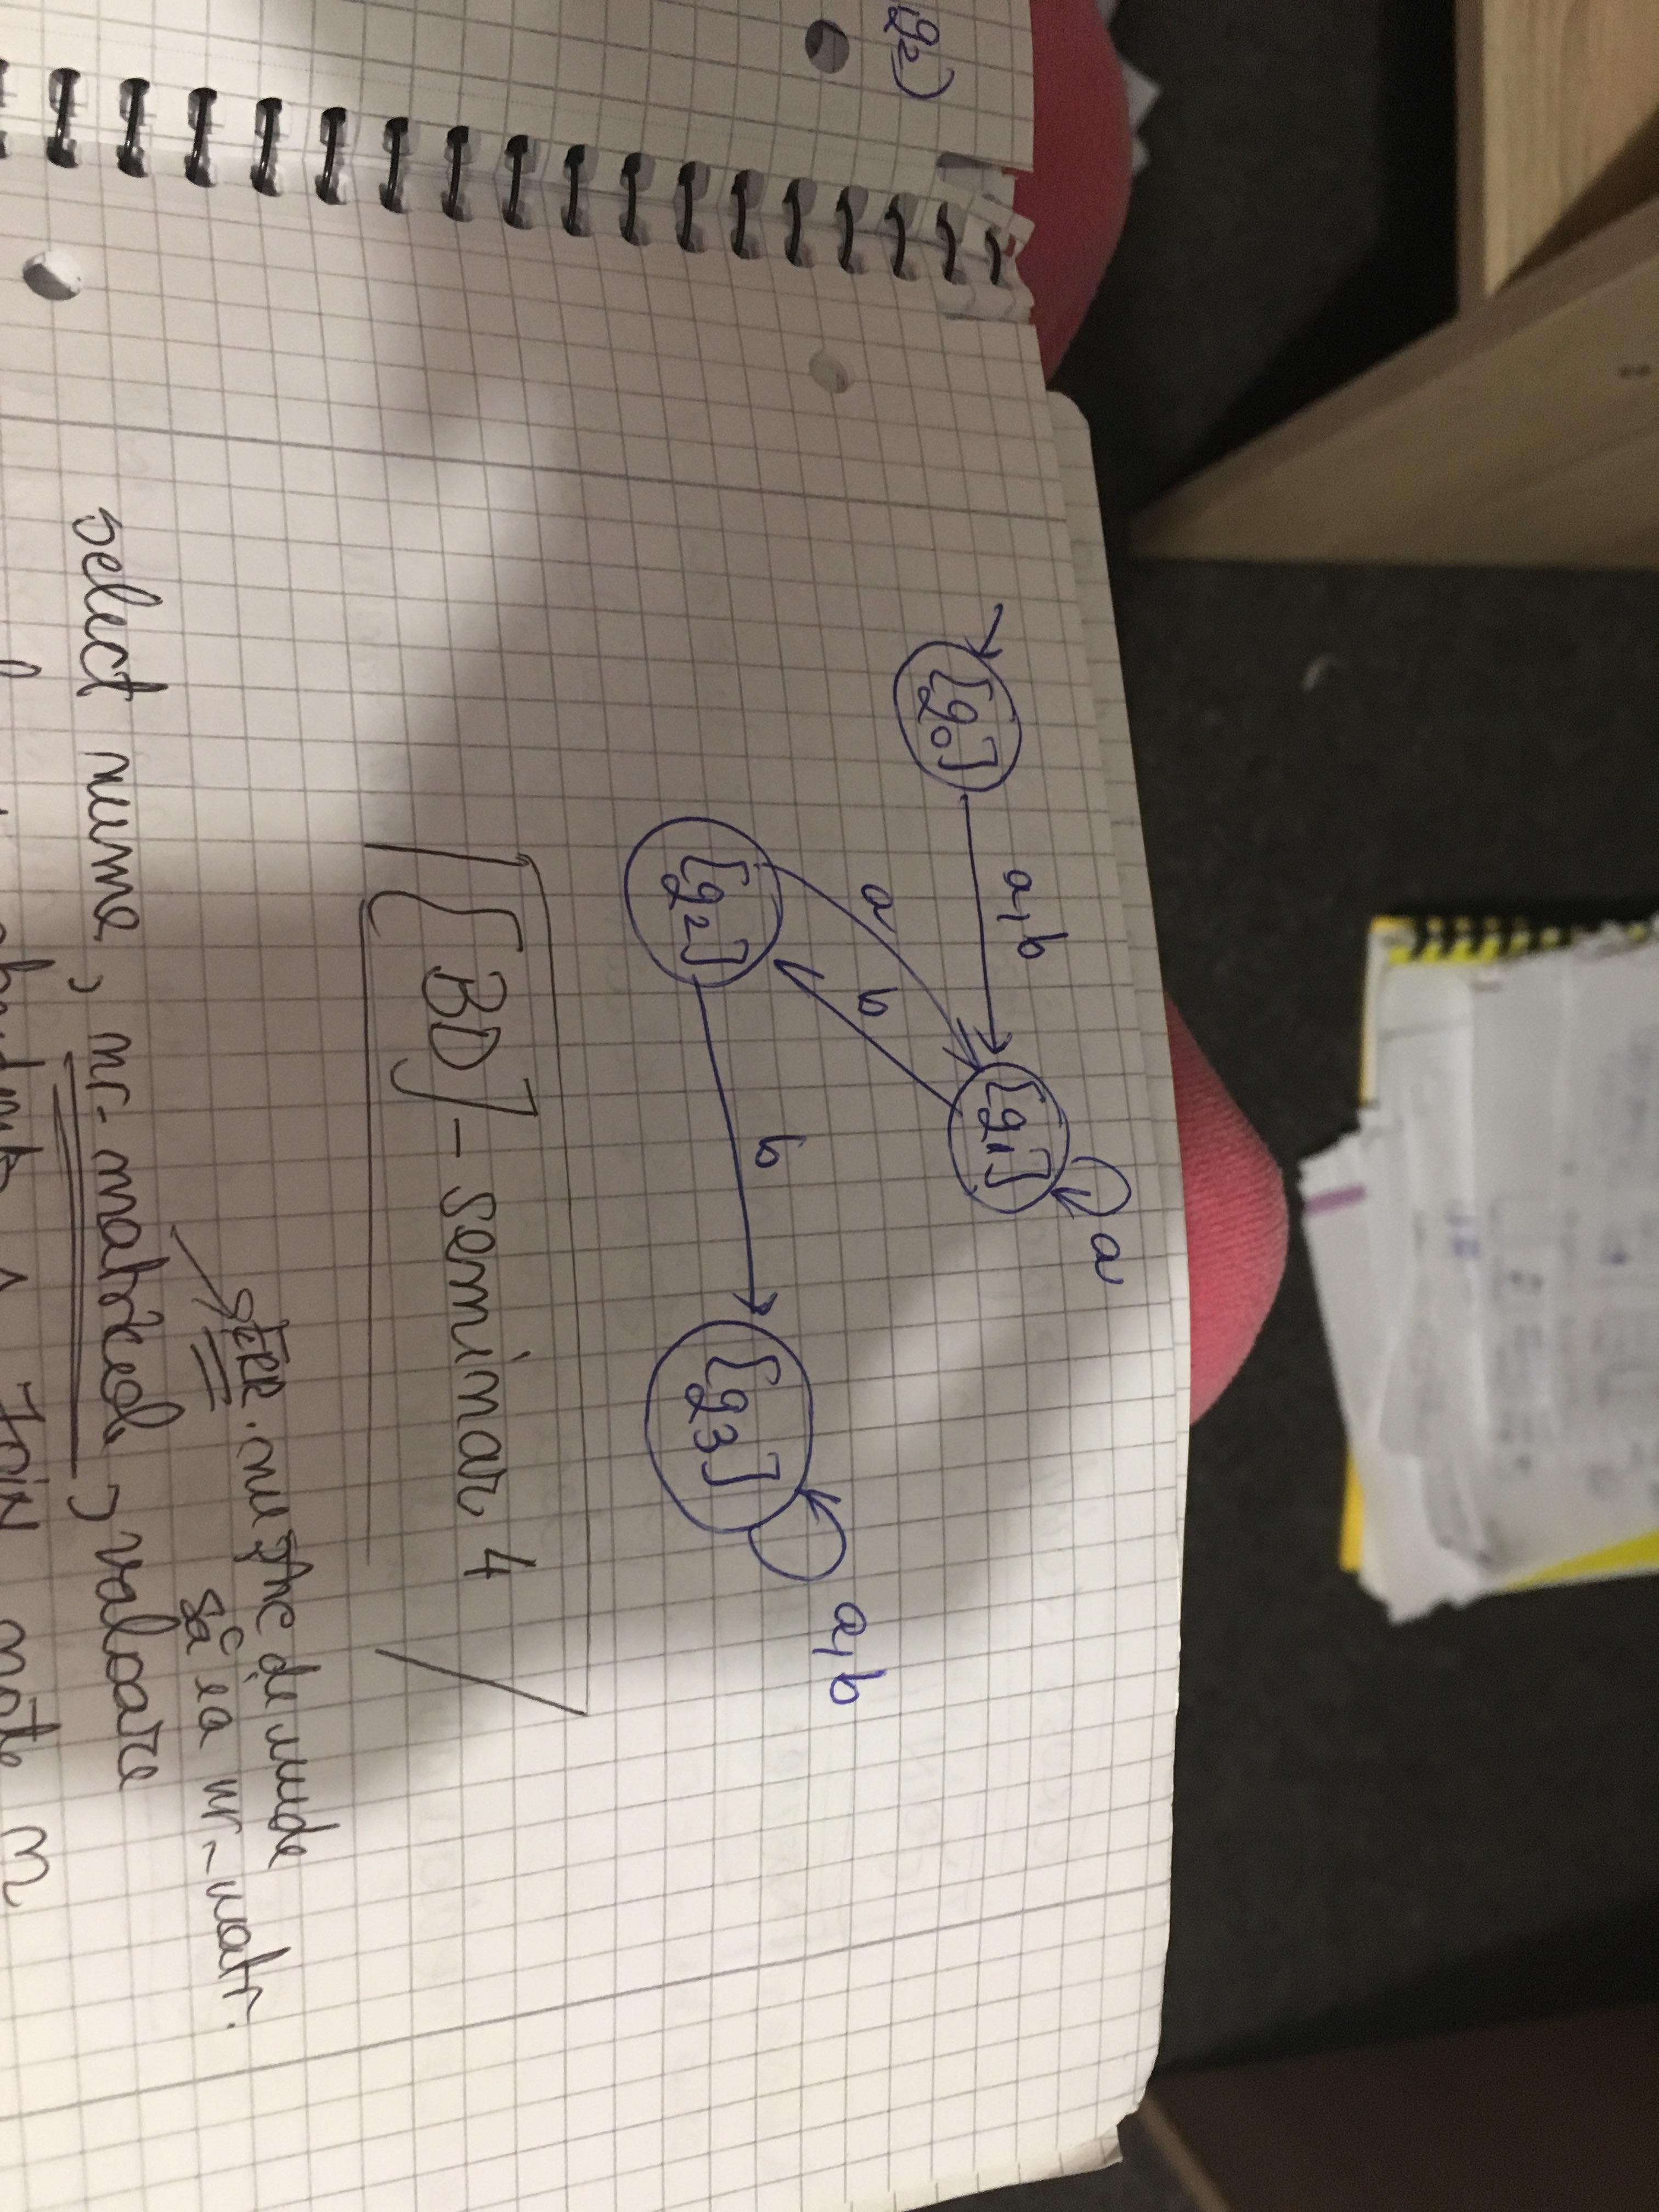 a
a,b
[q1]
[q0]
q2)
a
b
a,b
b
[q2]
[q3]
[BD] - seminar 4
ERR. nu știe de unde
să ia nr-matr.
select nume, nr-matricol, valoare
Join note n